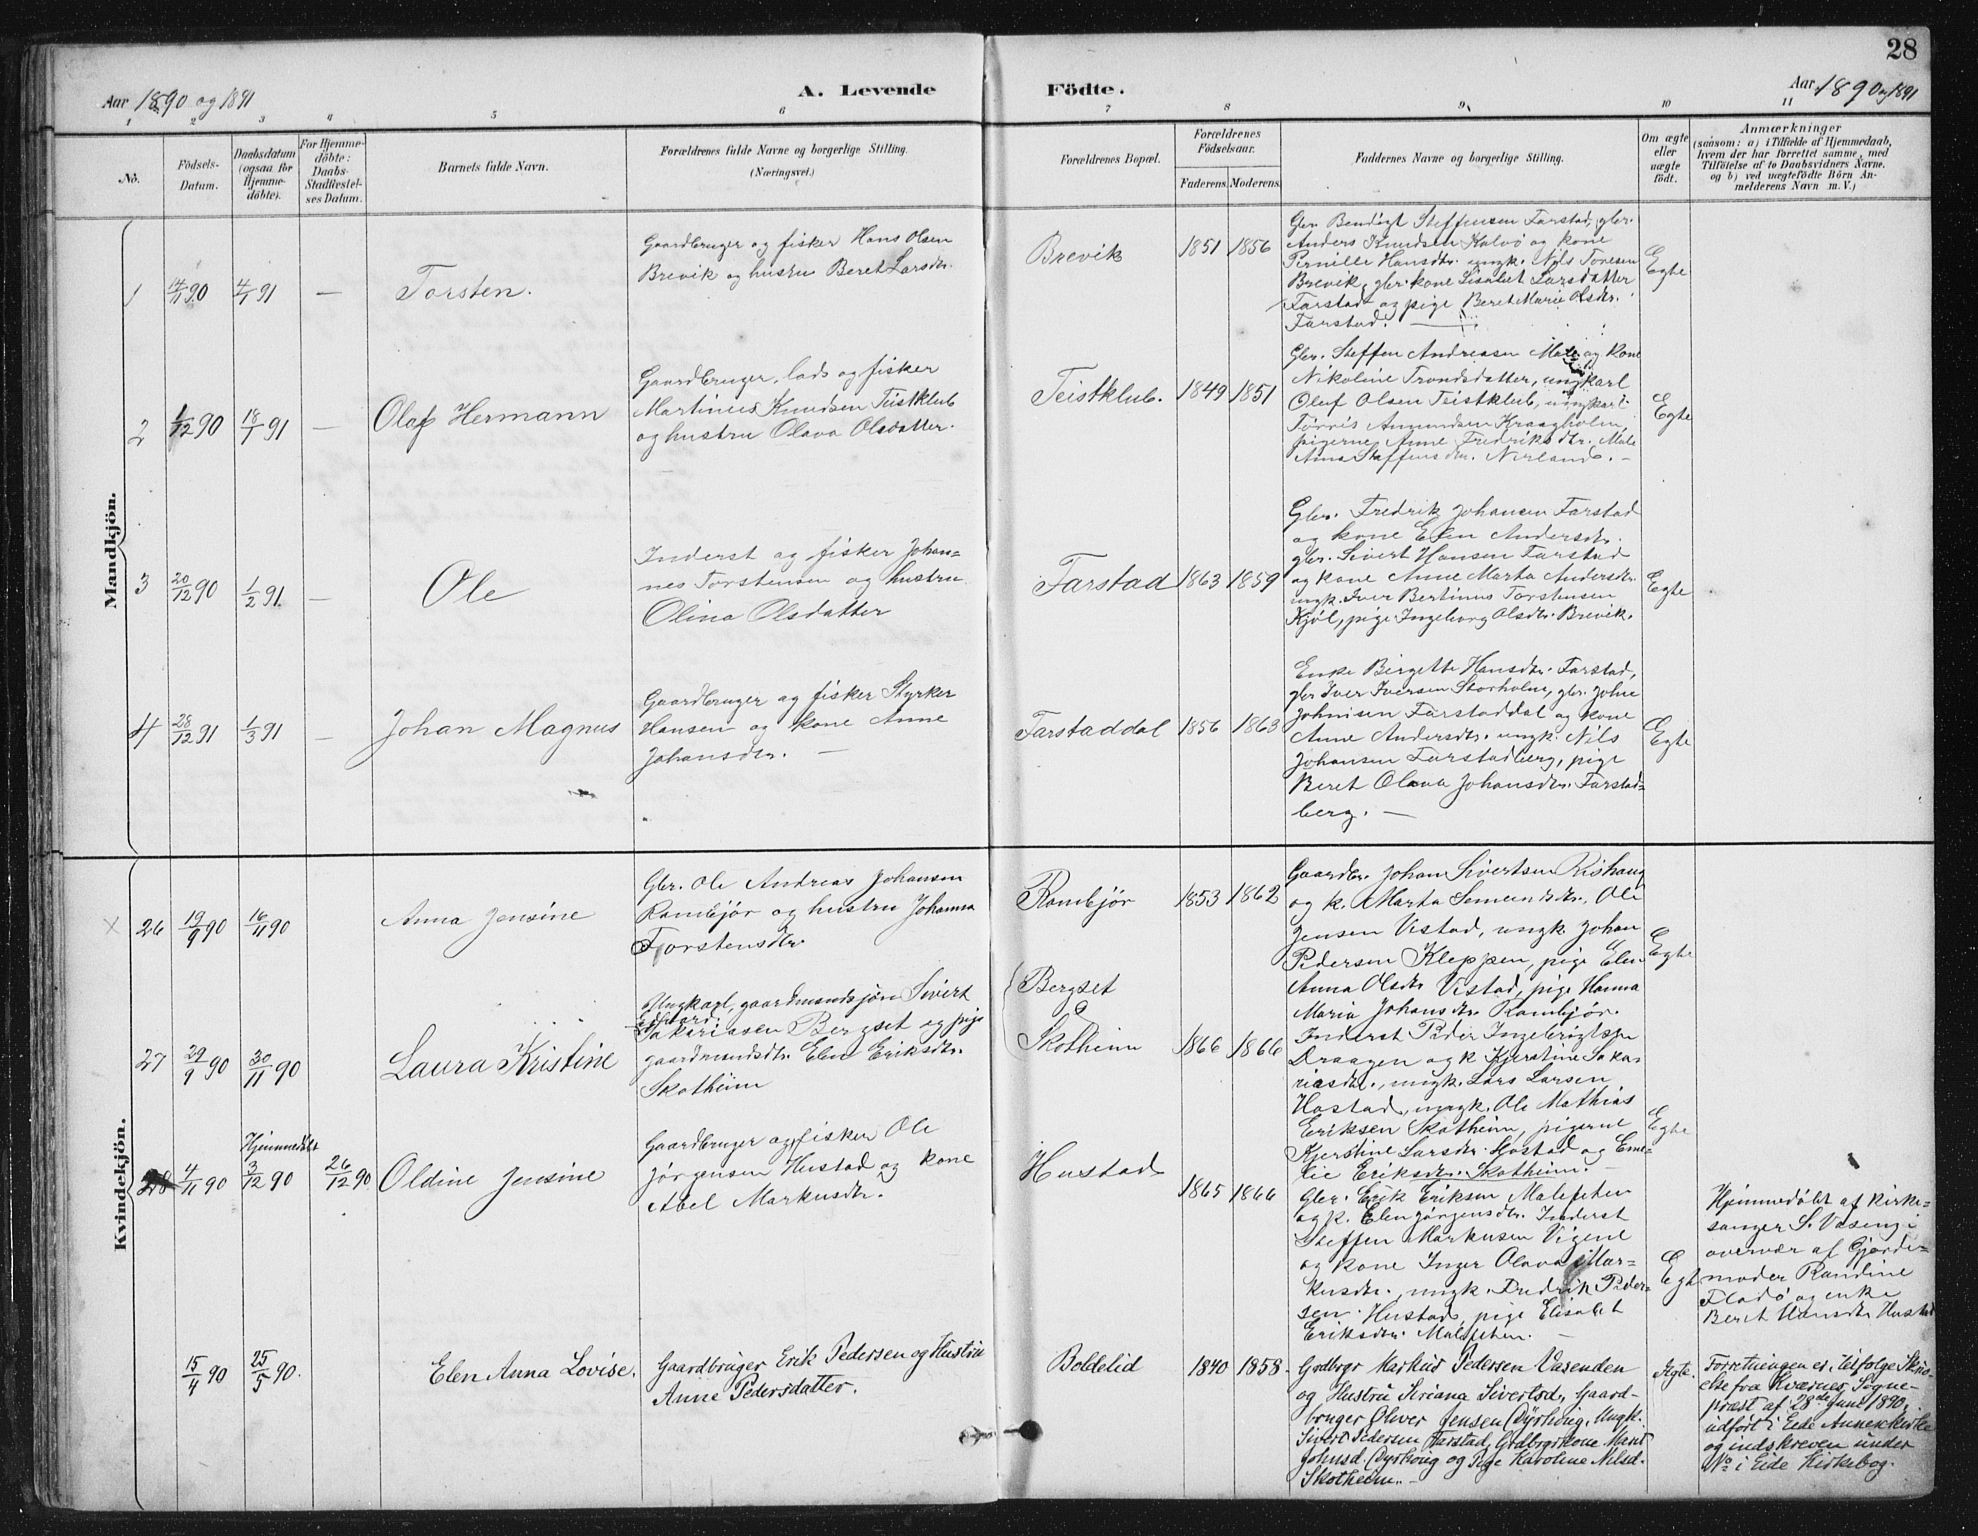 28
Aar 1890 og 1891
A. Levende
Födte.
Aar 1890 og 1891
1 2 3 4 5 6 7 8 9 10 11
No.
Födsels-
Datum.
Daabsdatum
(ogsaa for
Hjemme-
döbte).
For Hjemme-
döbte:
Daabs-
Stadfæstel-
ses Datum.
Barnets fulde Navn.
Forældrenes fulde Navne og borgerlige Stilling.
(Næringsvei.)
Forældrenes Bopæl.
Forældrenes
Födselsaar.
Faderens.
Moderens.
Faddernes Navne og borgerlige Stilling.
Om ægte
eller
uægte
födt.
Anmærkninger
(saasom: a) i Tilfælde af Hjemmedaab,
hvem der har forrettet samme, med
Tilföielse af to Daabsvidners Navne,
og b) ved uægtefödte Börn An-
melderens Navn m. V.)
Mandkjön.
1
14/11 90
4/1 91
—
Torsten.
Gaardbruger og fisker Hans Olsen
Brevik og hustru Beret Larsdtr.
Brevik
1851
1856
Gbr. Bendigt Steffensen Farstad, gbr.
Anders Knudsen Kalvö og kone
Pernille Hansdtr. ungk. Nils Toresen
Brevik, gbr. kone Lisabet Larsdatter
Farstad og pige Beret Marie Olsdtr.
Farstad. —
Egte
2
1/12 90
18/1 91
—
Olaf Hermann
Gaardbruger, lods og fisker
Martinus Knudsen Teistklub
og hustru Olava Olsdatter.
Teistklub.
1849
1851
Gbr. Steffen Andreasen Male og kone
Nikoline Trondsdatter, ungkarl
Oluf Olsen Teistklub, ungkarl
Törris Amundsen Kraagholm,
pigerne Anne Fredriksdtr. Male
Ana Steffensdtr. Nerland. —
Egte
3
20/12 90
1/2 91
—
Ole
Inderst og fisker Johan=
nes Torstensen og hustru
Olina Olsdatter
Farstad
1863
1859
Gbr. Fredrik Johansen Farstad
og kone Elen Andersdtr.
gbr. Sivert Hansen Farstad
og kone Anne Marta Andersdtr.
ungk. Iver Bertinus Torstensen
Kjöl, pige Ingeborg Olsdtr. Brevik.
Egte
4
28/12 91
1/3 91
—
Johan Magnus
Gaardbruger og fisker Styrker
Hansen og kone Anne
Johansdtr. —
Farstaddal
1856
1863
Enke Birgette Hansdtr. Farstad,
gbr Iver Iversen Storholm, gbr. John
Johnsen Farstaddal og kone
Anne Andersdtr. ungk. Nils
Johansen Farstadberg, pige
Beret Olava Johansdtr. Farstad=
berg. —
Egte
Kvindekjön.
26
19/9 90
16/11 90
Anna Jensine
Gbr. Ole Andreas Johansen
Rambjör og hustru Johanna
Torstensdtr.
Rambjör
1853
1862
Gaardbr. Johan Sivertsen Rishaug
og k. Marta Semundsdtr., Ole
Jensen Vestad, ungk. Johan
Pedersen Kleppen, pige Elen
Anna Olsdtr Vistad, pige Hanna
Maria Johansdtr. Rambjör.
Egte
27
29/9 90
30/11 90
Laura Kristine
Ungkarl, gaardmandssön Sivert
Sakariasen Bergset og pige
gaardmandsdtr. Elen Eriksdtr.
Skotheim
Bergset
&
Skotheim
1866
1866
Inderst Peder Ingebrigtsen
Draagen og k Kjerstine Saka
riasdtr., ungk. Lars Larsen
Hostad, ungk. Ole Mathias
Eriksen Skotheim, pigerne
Kjerstine Larsdtr. Hostad og Eme=
lie Eriksdtr. Skotheim. —
Egte
28
4/11 90
Hjemmedöbt
3/12 90
26/12 90
Oldine Jensine
Gaardbruger og fisker Ole
Jörgensen Hustad og kone
Abel Markusdtr.
Hustad
1865
1866
Gbr. Erik Eriksen Malefeten
og k. Elen Jörgensdtr. Inderst
Steffen Markusen Vigene
og kone Inger Olava Mar=
kusdtr. ungk. Fredrik Peder=
sen Hustad, pige Elisabet
Eriksdtr. Malefeten. —
Egte
Hjemmedöbt af kirke=
sanger S. Vaseng i
overvær af Gjorde=
moder Randine
Fladö og enke
Beret Hansdtr Hustad
15/4 90
25/5 90.
Elen Anna Lovise.
Gaardbruger Erik Pedersen og Hustru
Anne Pedersdatter.
Boldelid
1840
1858.
Grdbrgr Markus Pedersen Vasenden
og Hustru Seriana Sivertsd., Gaard-
bruger Oliver Jensen Dyrhoug, Ungk.
Sivert Pedersen Farstad, Grdbrgrkone Marit
Johnsd. Dyrhoug og Pige Karoline Nilsd.
Skotheim. —
Ægte.
Forretningen er, ifølge Skriv-
else fra Kværnes Sogne-
præst af 28de Juni 1890,
udført i Eide Annenkirke
og indskreven under
No i Eide Kirkebog.